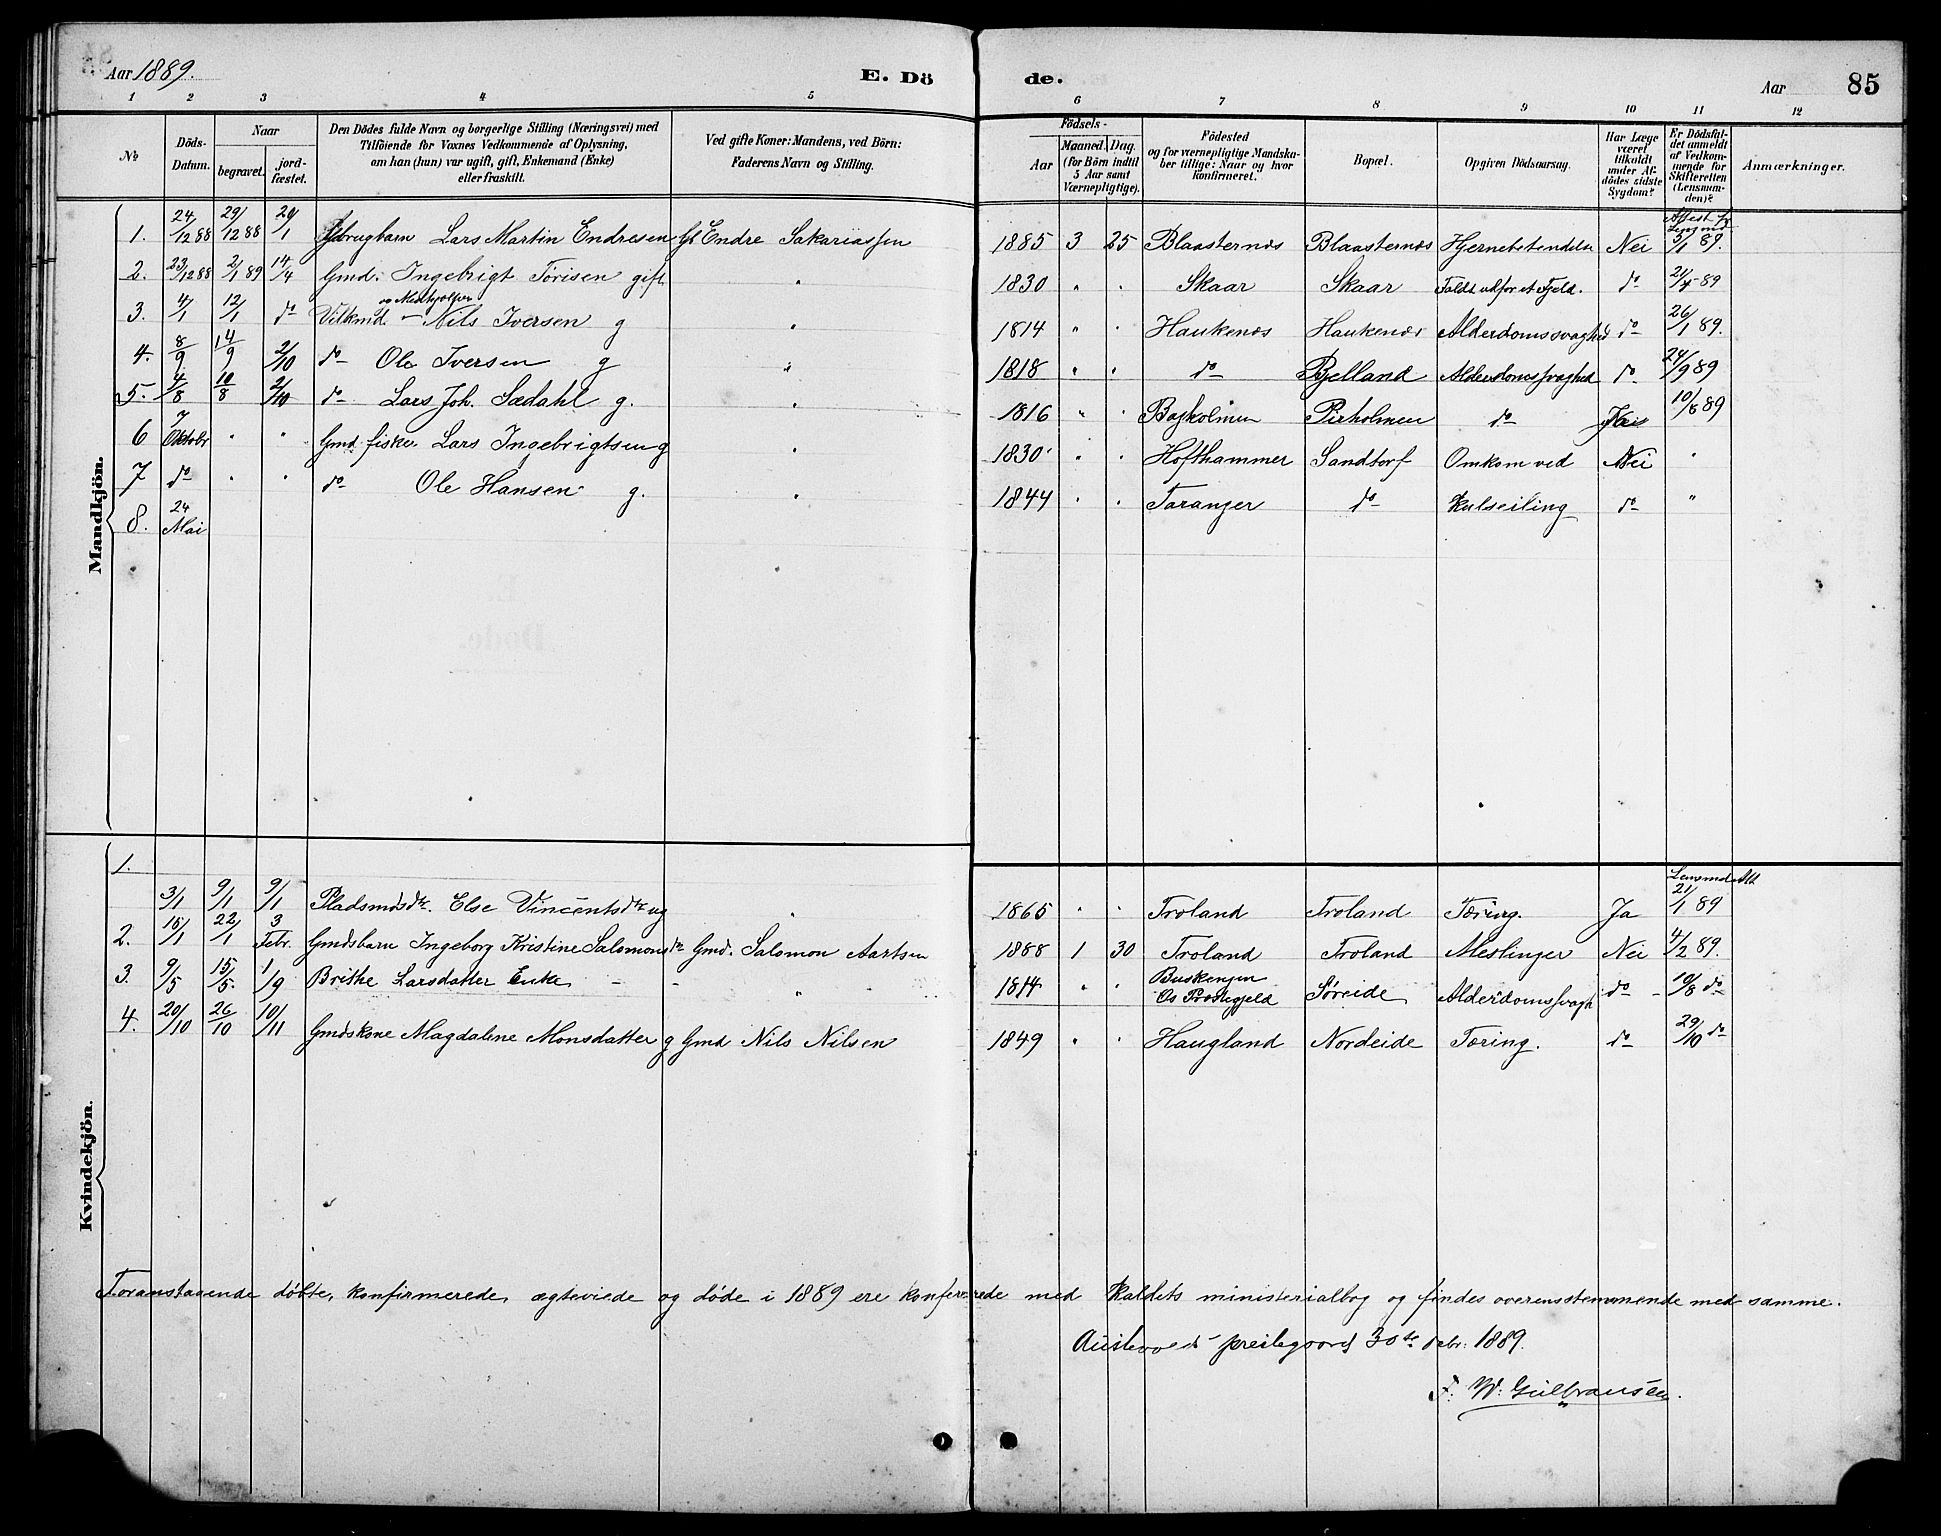 Aar 1889.
E. Dö de.
Aar 85
1 2 3 4 5 6 7 8 9 10 11 12
No
Döds-Datum.
Naar begravet. jordfæstet.
Den Dödes fulde Navn og borgerlige Stilling (Næringsvei) med
Tilföiende for Voxnes Vedkommende af Oplysning,
om han (hun) var ugift, gift, Enkemand (Enke)
eller fraskilt.
Ved gifte Koner: Mandens, ved Börn:
Faderens Navn og Stilling.
Födsels-
Aar Maaned. Dag.
(for Börn indtil
5 Aar samt
Værnepligtige).
Födested
og for værnepligtige Mandskaber tillige: Naar og hvor
konfirmeret.
Bopæl.
Opgiven Dödsaarsag.
Har Læge
været
tilkaldt
under Afdödes sidste
Sygdom?
Er Dödsfaldet anmeldt
af Vedkommende for
Skifteretten
(Lensmanden)?
Anmærkninger.
Mandkjön.
1. 24/12 88 29/12 88 20/1 Lars Martin Endresen Endre Sakariassen 1885 3 25 Blaasternæs Blaasternæs Hjernebetendelse Nei 3/1 89.
2. 23/12 88 2/1 89 14/4 Gmd. Ingebrigt Törisen gift " 1830 " " Skaar Skaar Faldt udfor et Fjeld. do 21/4 89
3. 4/1 12/1 do Nils Iversen g " 1814 " " Haukenæs Haukenæs Alderdomssvaghed do 26/1 89.
4. 8/9 14/9 2/10 do Ole Iversen g " 1818 " " do Bjelland Alderdomssvaghed do 24/9 89
5. 4/8 10/8 2/10 do Lars Joh. Sædahl g. " 1816 " " Bagholmen Pirholmen do 10/8 89
6 7 Oktobr " " Gmd. fisker Lars Ingebrigtsen g " 1830 " " Hofthammer Sandtorf Omkom ved Nei "
7 do " " do Ole Hansen g. " 1844 " " Taranger do Kulseiling do "
8. 24 Mai
Kvindekjön.
1.
3/1 9/1 9/1 Pladsmdsdtr. Else Vincentsdtr ug " 1865 " " Troland Troland Tæring. Ja 21/1 89
2. 15/1 22/1 3 Febr. Gmdsbarn Ingeborg Kristine Salomonsdtr Gmd. Salomon Aartsen 1888 1 30 Troland Troland Meslinger Nei 4/2 89.
3. 9/5 15/5. 1/9 Brithe Larsdatter Enke - - " 1814 " " Buskenjen Os Præstegjeld Søreide Alderdomssvagh do 10/8 do
4. 20/10 26/10 10/11 Gmdskone Magdalene Monsdatter g Gmd Nils Nilsen 1849 " " Haugland Nordeide Tæring. do 29/10 do
Foranstaaende døbte, konfirmerede, ægteviede og døde i 1889 ere konfererede med Kaldets ministerialbog og findes overensstemmende med samme.
Austevold prestegaard 30te Debr. 1889.
F. W. Gulbransen.